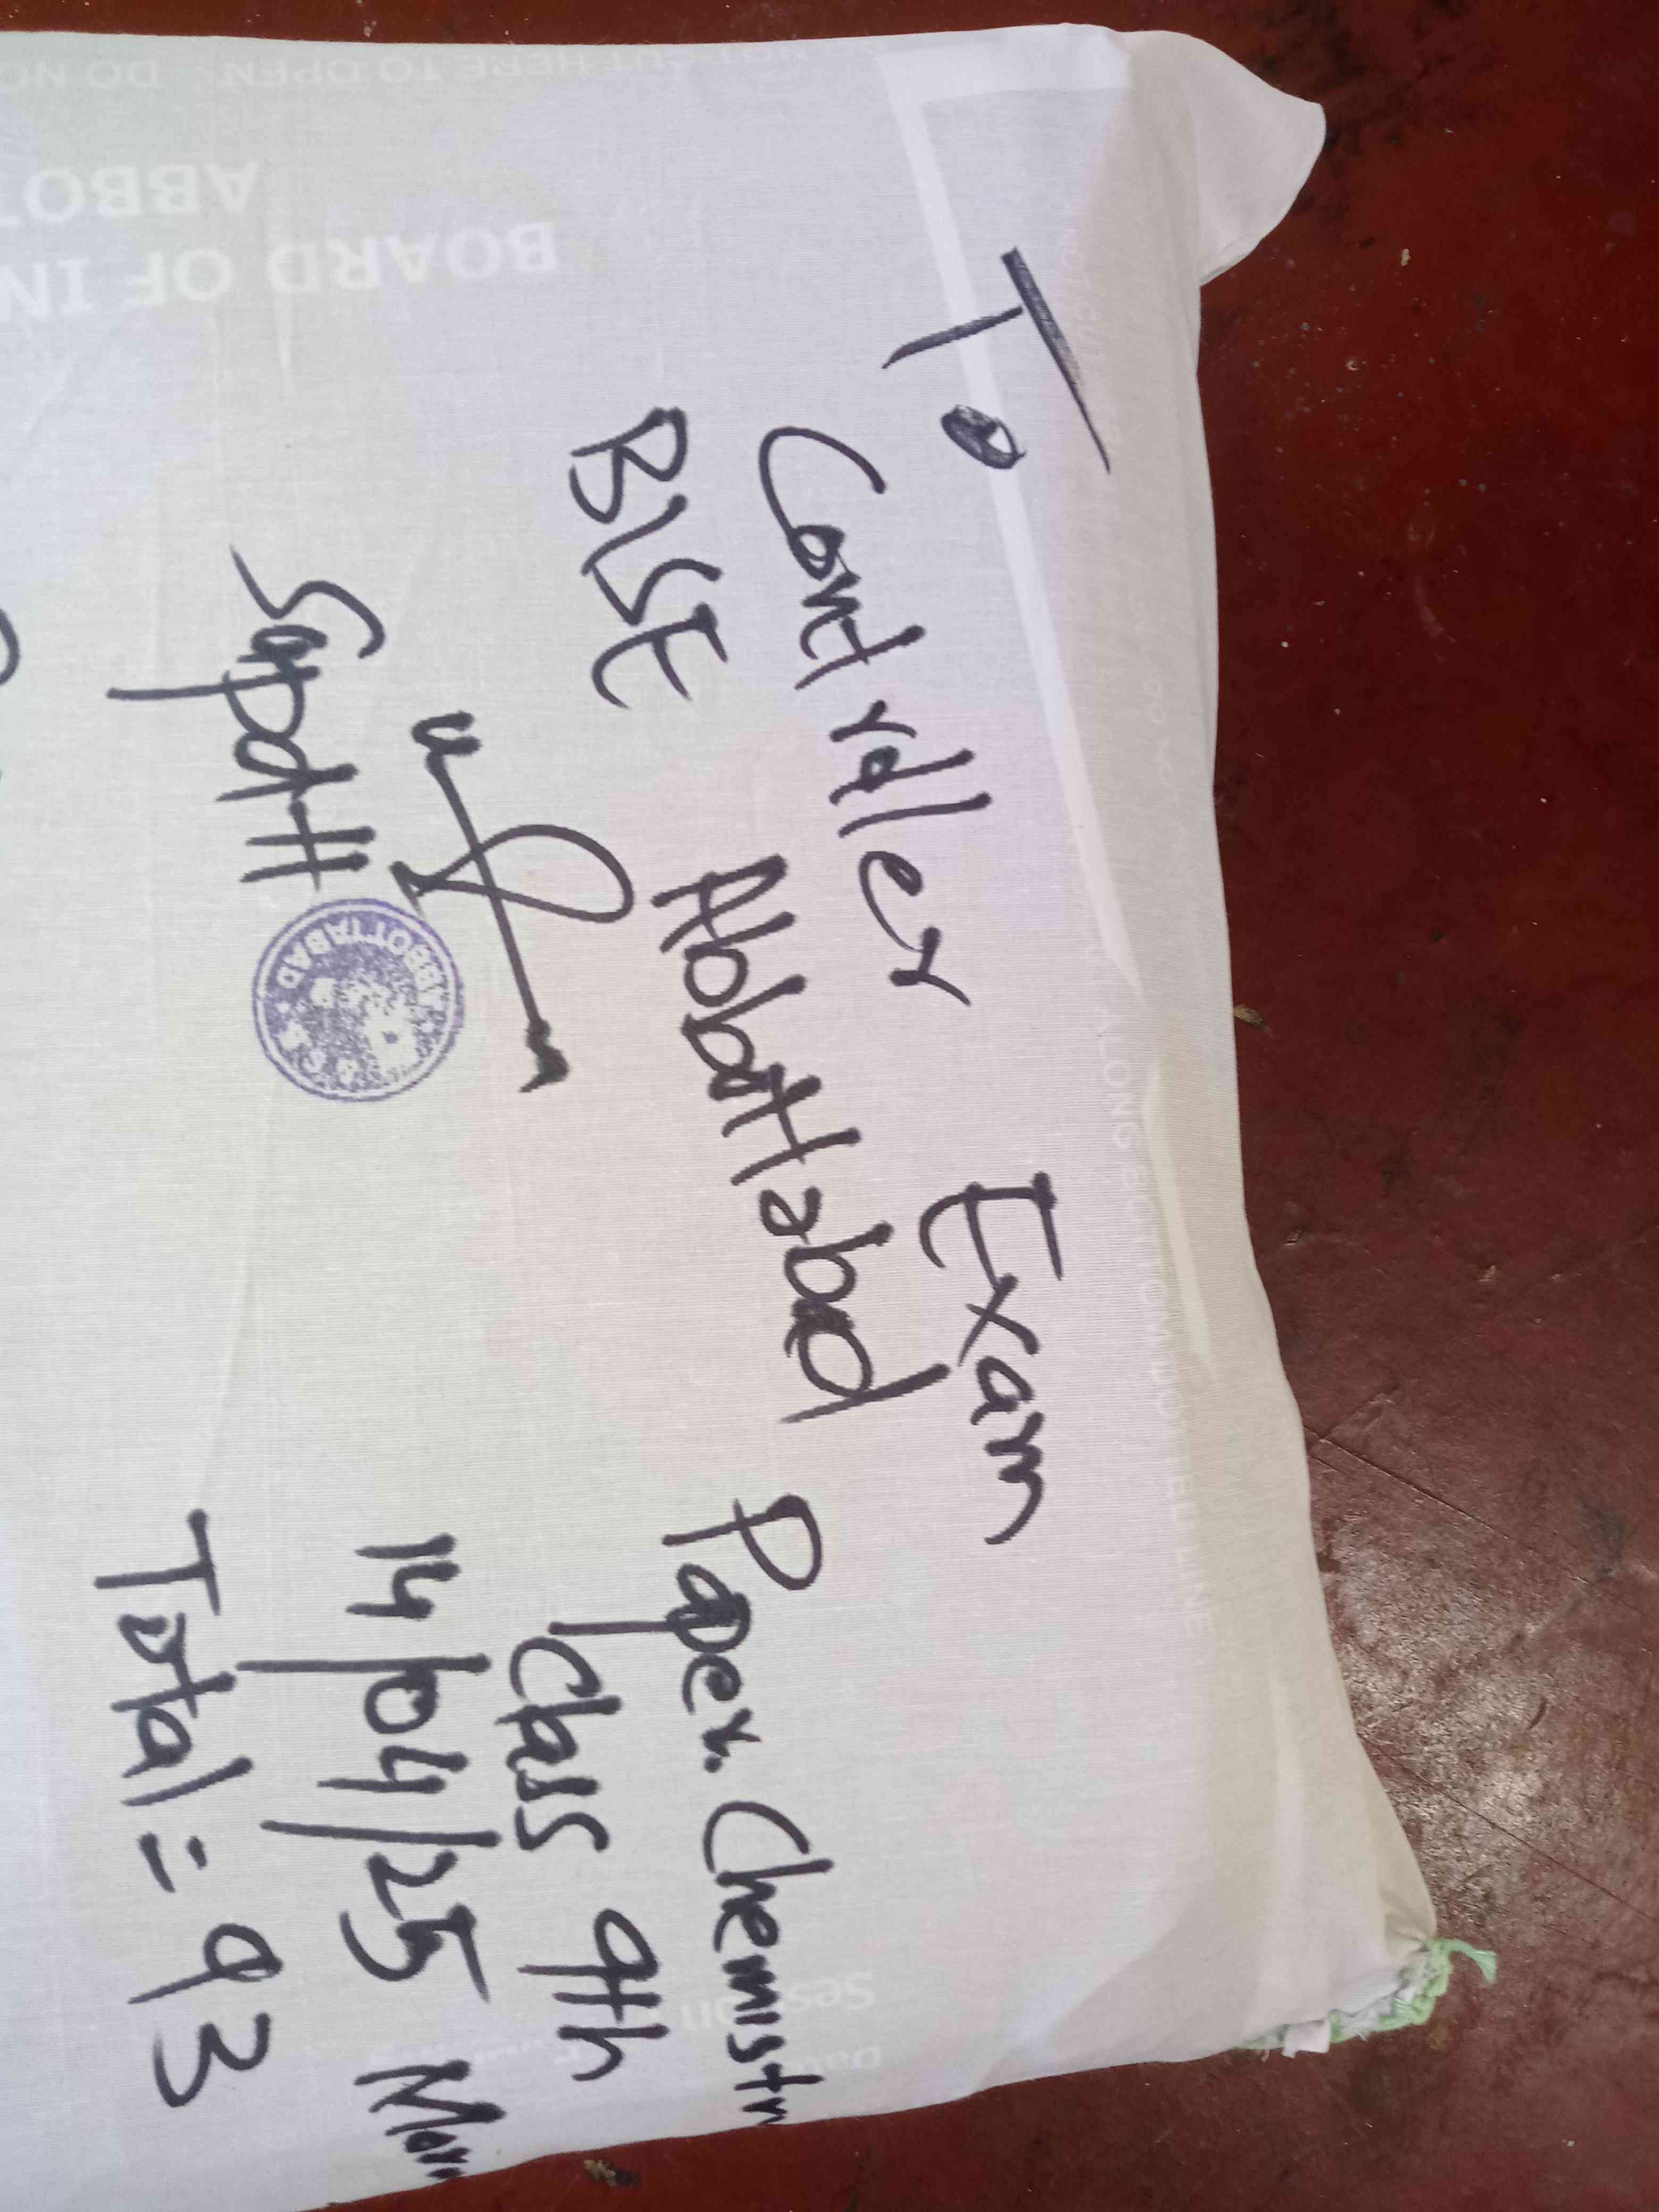 To
Controller Exam
BISE Abbottabad
Paper. Chemistry
Class 9th
14/04/25 Mor
Total = 93
Supdtt
ABBOTTABAD
BOARD OF IN
ABBOT
NOT CUT HERE TO OPEN - DO NO
Session